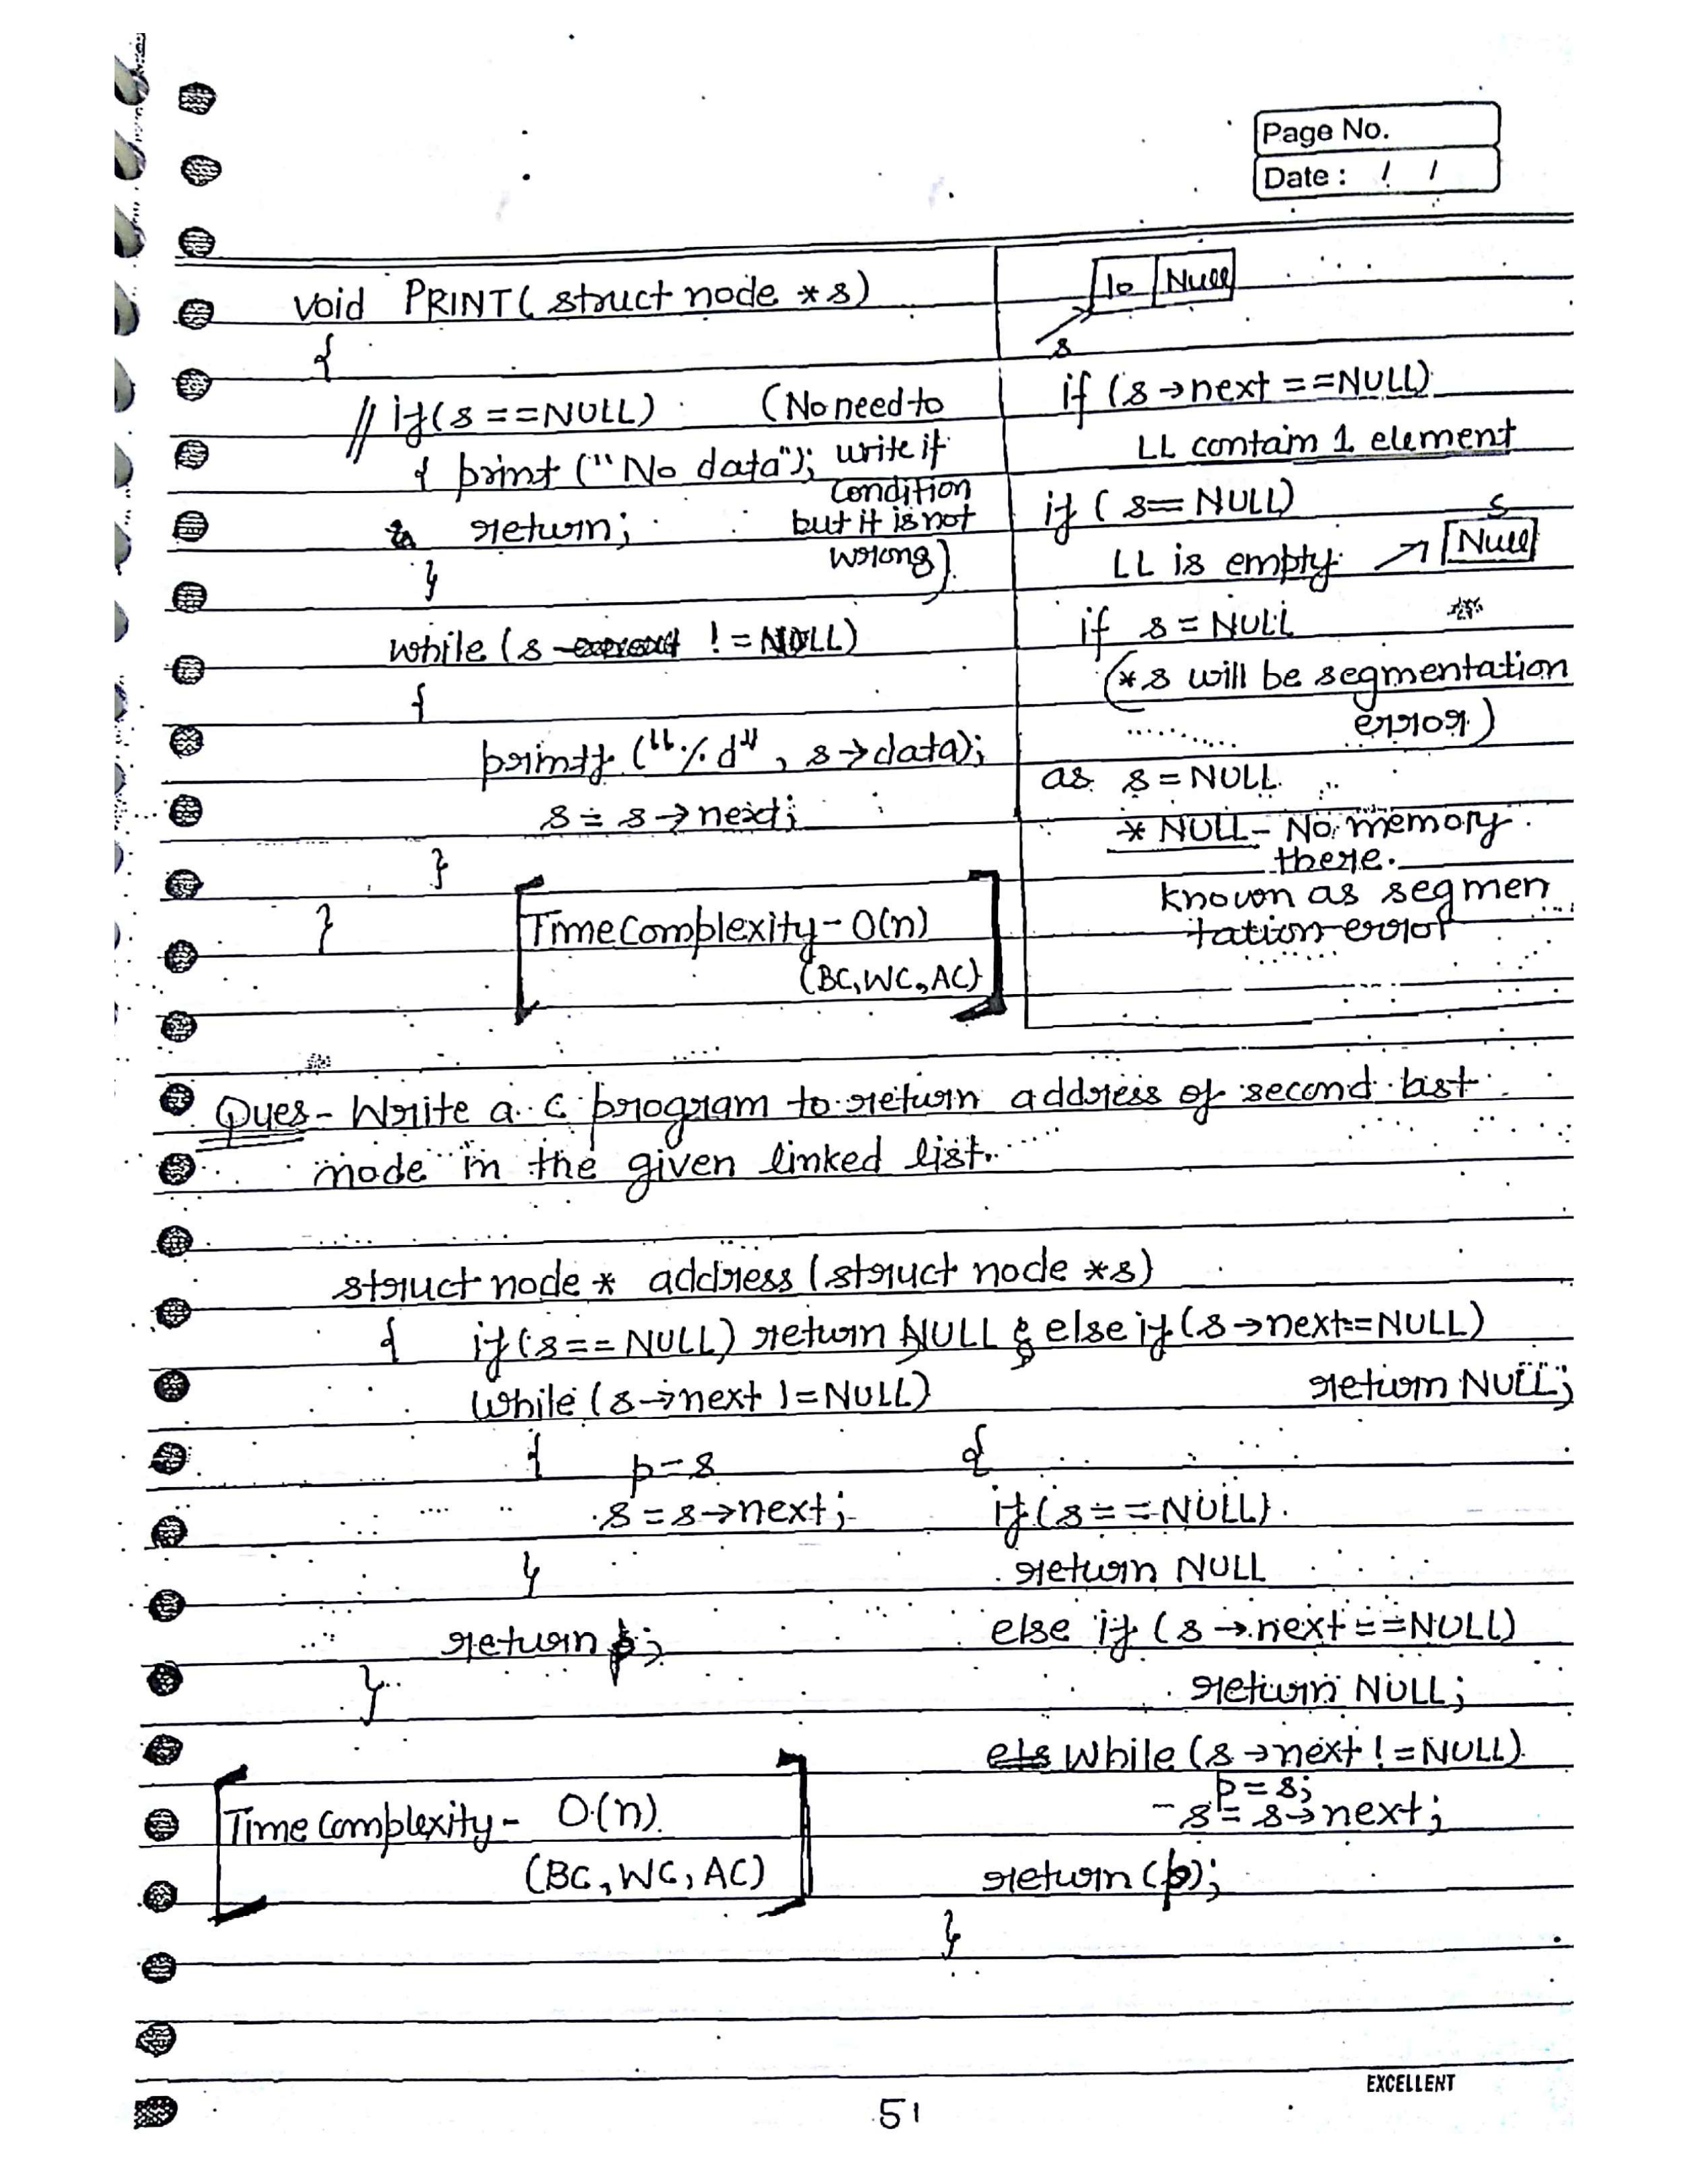 Page No.
Date : / /
void PRINT( struct node *s)
{
// if(s==NULL) (No need to
{ print ("No data"); write if
condition
return; but it is not
wrong)
}
while (s != NULL)
{
printf ("%d", s→data);
s = s→next;
}
}
Time Complexity - O(n)
(BC, WC, AC)
10 Null
s
if (s→next ==NULL)
LL contain 1 element
if ( s== NULL)
s
LL is empty → Null
if s = NULL
(*s will be segmentation
error)
as s = NULL
* NULL - No memory
there.
known as segmen
tation error
Ques - Write a c program to return address of second last
node in the given linked list.
struct node * address (struct node *s)
{ if(s== NULL) return NULL; else if (s→next==NULL)
while (s→next !=NULL) return NULL;
{ p-s
s = s→next;
}
return p;
}
{
if(s==NULL)
return NULL
else if (s→next==NULL)
return NULL;
els while (s→next!=NULL)
p = s;
s = s→next;
return (p);
}
Time Complexity - O(n)
(BC, WC, AC)
EXCELLENT
51